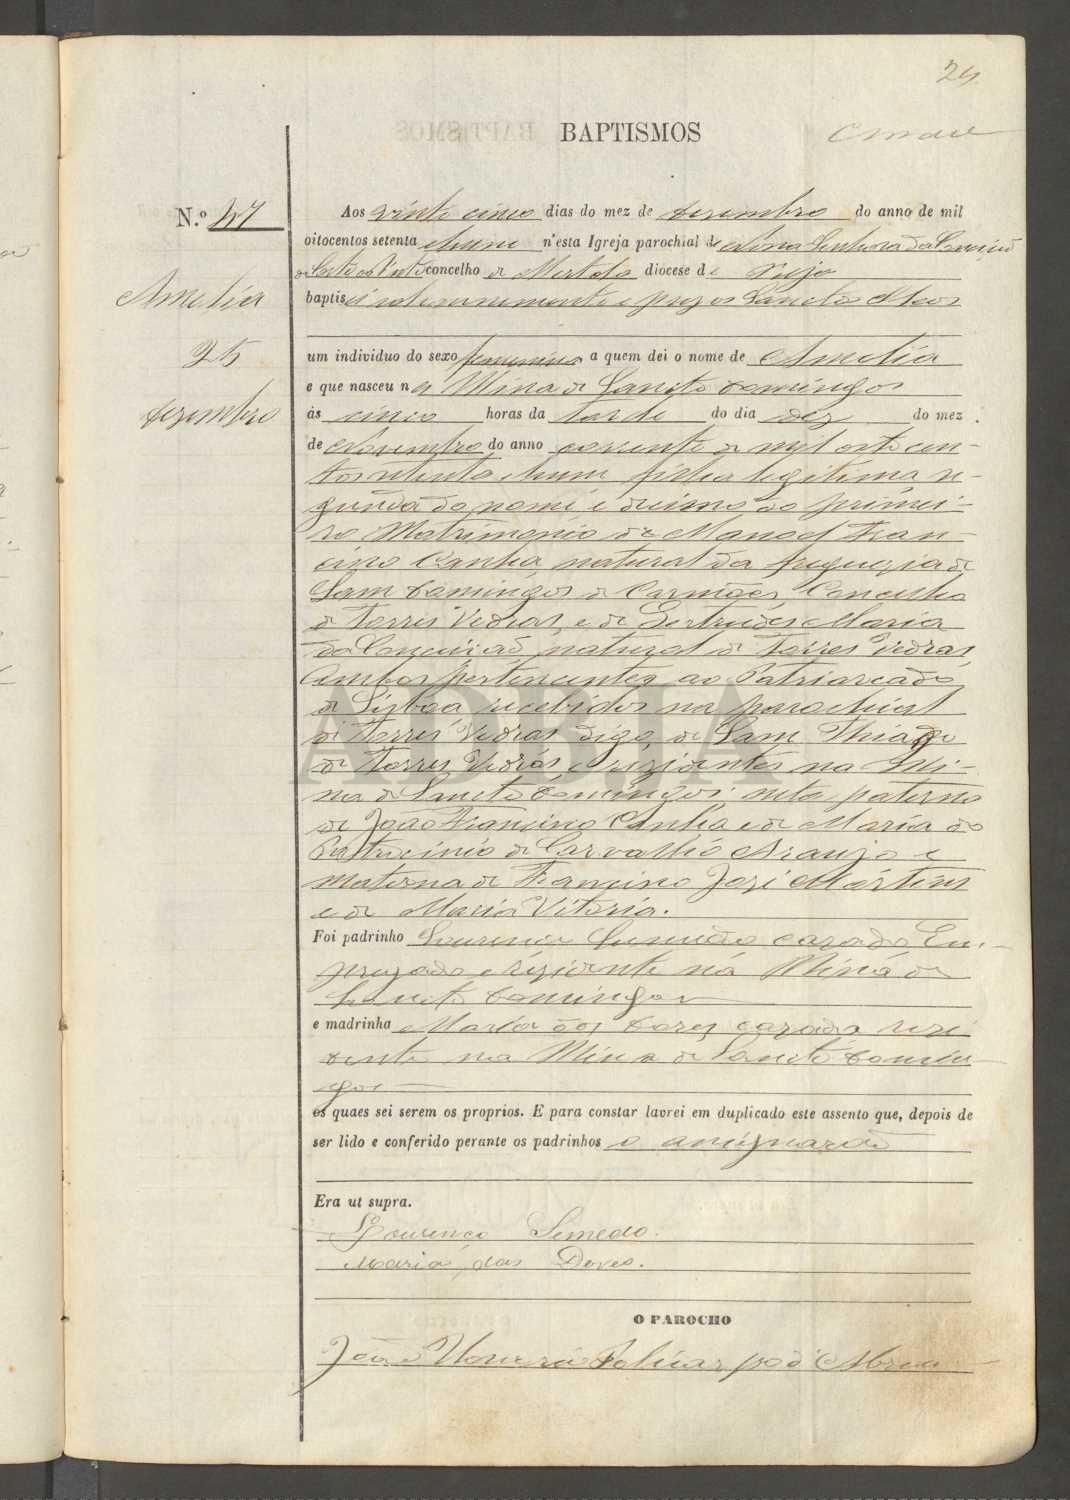 24
BAPTISMOS
N.º 47
Amelia
25
dezembro
Aos vinte cinco dias do mez de dezembro do anno de mil
oitocentos setenta e hum n'esta Igreja parochial de Nossa Senhora da Conceição
concelho de Mertola diocese de Beja
baptisei solemnemente e puz os Sanctos Oleos
um individuo do sexo femenino a quem dei o nome de Amelia
e que nasceu na Mina de Sancto Domingos
ás cinco horas da tarde do dia dez do mez
de Novembro do anno corrente de mil oito cen-
tos setenta e hum filha legitima se-
gunda do nome e decima do primei-
ro Matrimonio de Manoel Fran-
cisco Canha, natural da freguezia de
Sam Domingos de Carmões, Concelho
de Torres Vedras, e de Gertrudes Maria
da Conceição, natural de Torres Vedras,
ambos pertencentes ao Patriarcado
de Lisboa recebidos na parochial
de Torres Vedras digo, de Sam Thiago
de Torres Vedras e rezidentes na Mi-
na de Sancto Domingos: neta paterna
de João Francisco Canha e de Maria do
Patrocinio de Carvalho Araujo e
materna de Francisco José Martins
e de Maria Vitoria.
Foi padrinho Lourenço Semedo cazado Em-
pregado e rezidente na Mina de
Sancto Domingos
e madrinha Maria das Dores cazada, rezi
dente na Mina de Sancto Domin-
gos
os quaes sei serem os proprios. E para constar lavrei em duplicado este assento que, depois de
ser lido e conferido perante os padrinhos o assignarão
Era ut supra.
Lourenço Semedo.
Maria das Dores.
O PAROCHO
João d'Abreu
ADBJA